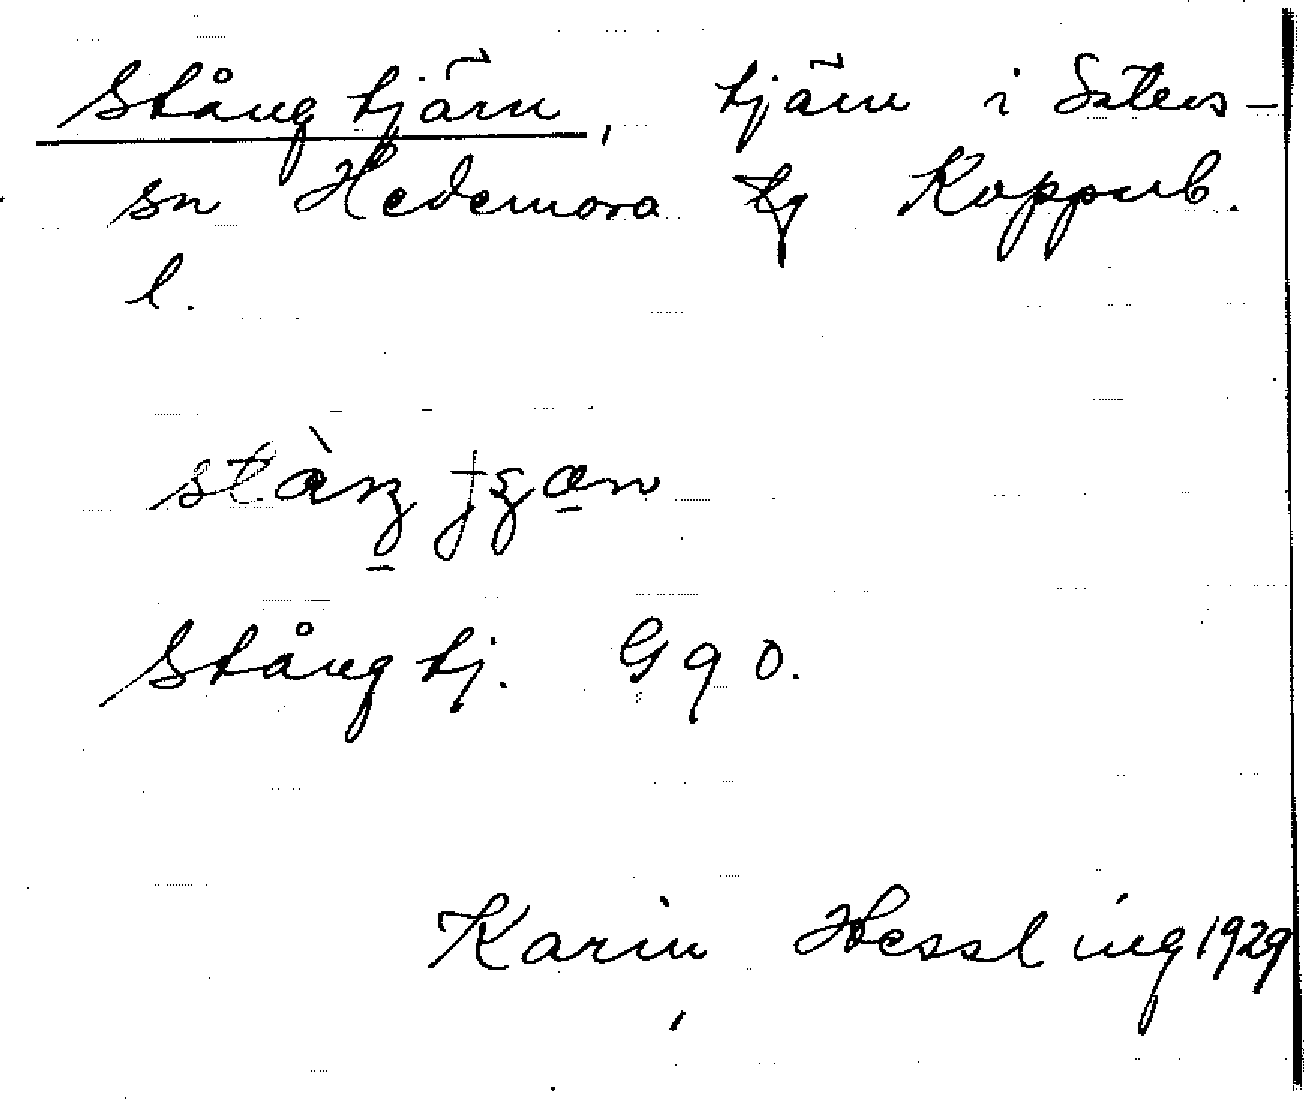 Stångtjärn, tjärn i Säters-
sn Hedemora tg Kopparb.
l.
Stångtj. G q o.
Karin Hessling 1929